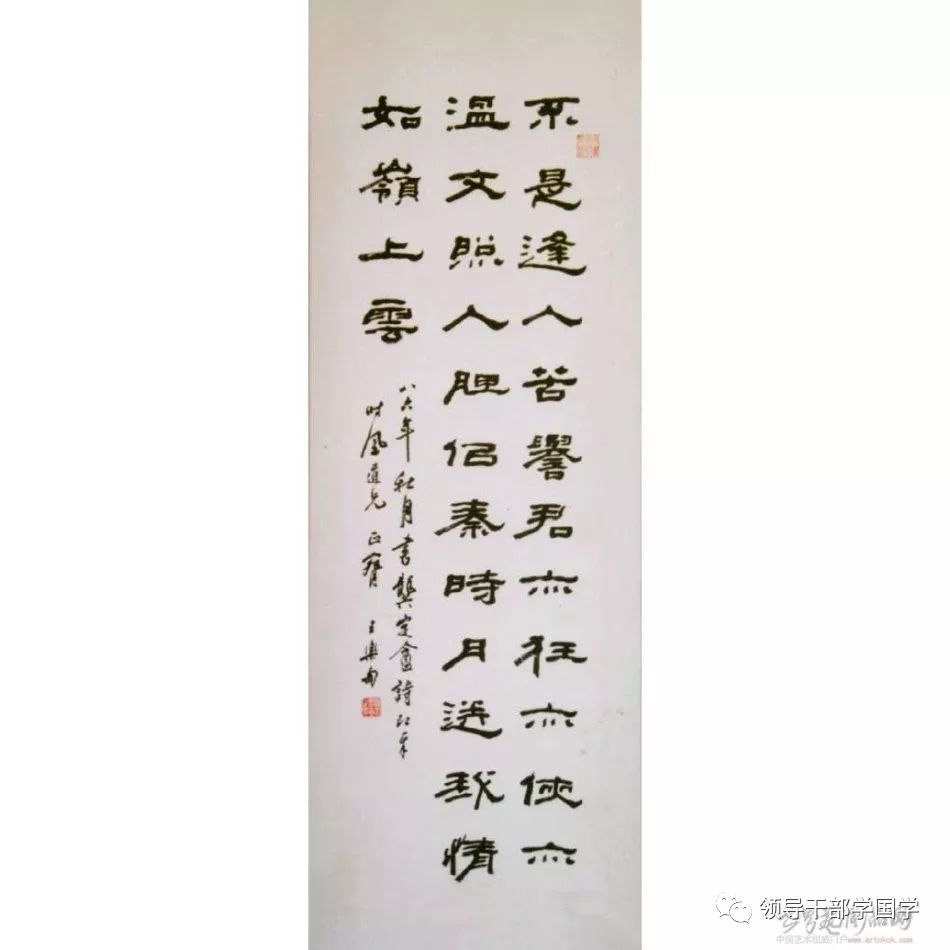 不是逢人苦譽君亦狂亦俠亦
溫文照人胆佀秦時月送我情
如嶺上雲
八六年秋月書龔定盦詩以奉
时鳳道兄正
王樂匋
领导干部学国学
中国艺术权威门户 www.artokok.com